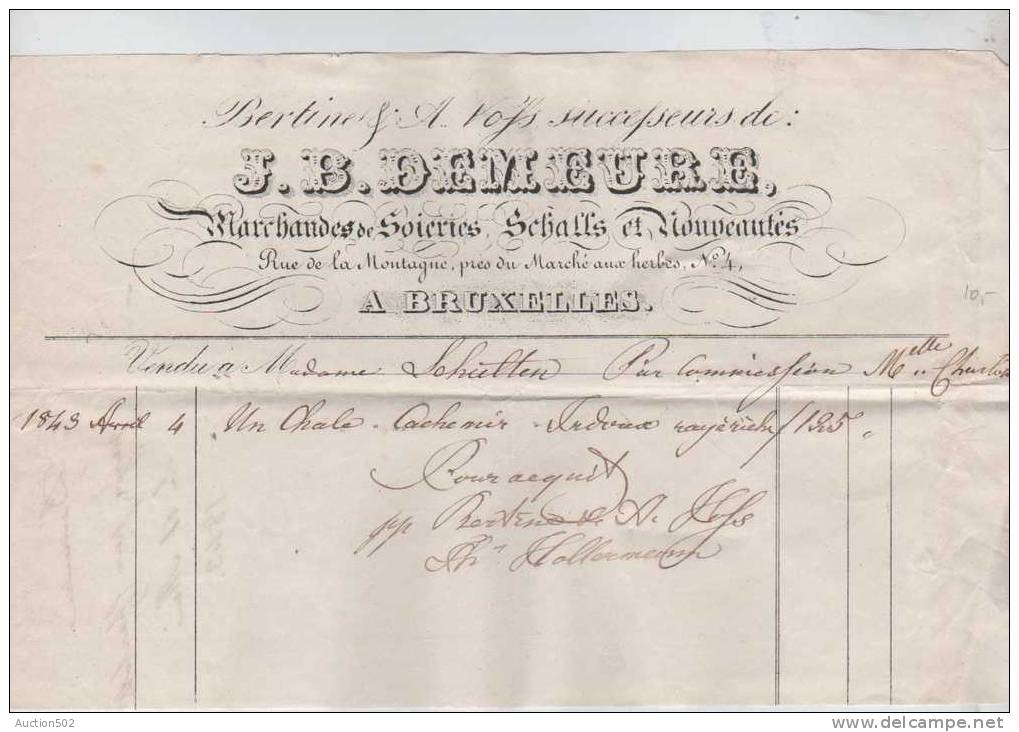 Bertine & A. Voss successeurs de:
J. B. DEMEURE,
Marchandes de Soieries, Schalls et Nouveautés
Rue de la Montagne, près du Marché aux herbes, No. 4,
A BRUXELLES.
10,-
Vendu à Madame Schulten Par Commission Melle
1843 Avril 4 Un Chale Cachemir 125 "
Pour acquit
pp Bertine & A. Voss
Auction502
www.delcampe.net